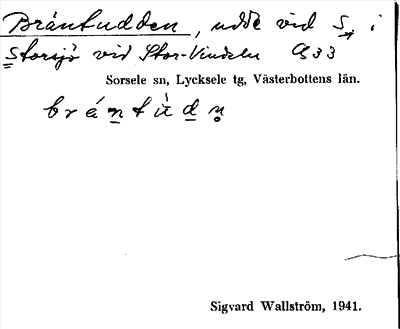 Bräntudden, udde vid S i
Storsjö vid Stor-Vindeln G33
Sorsele sn, Lycksele tg, Västerbottens län.
brántùdn̥
Sigvard Wallström, 1941.